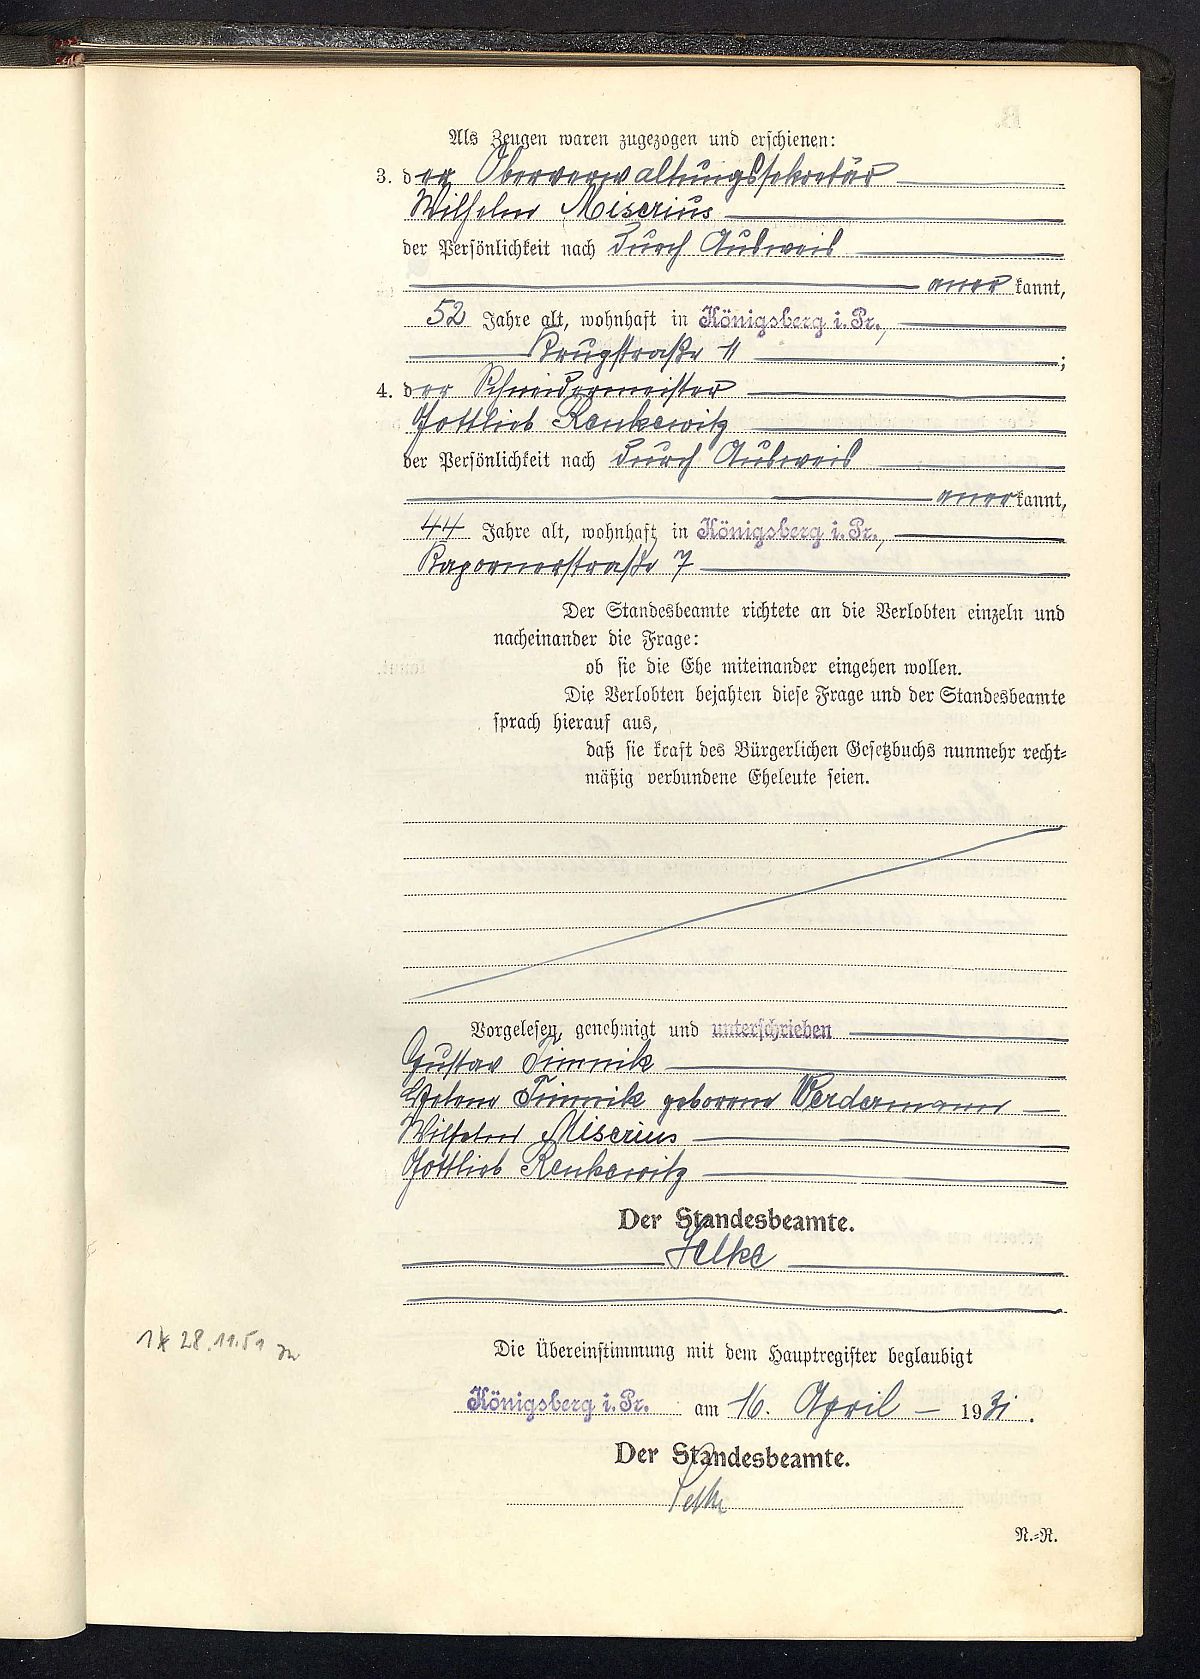 Als Zeugen waren zugezogen und erschienen:
3. der Oberverwaltungssekretär
Wilhelm Miserius
der Persönlichkeit nach durch Ausweis
anerkannt,
52 Jahre alt, wohnhaft in Königsberg i. Pr.,
Krugstraße 11 ;
4. der Schneidermeister
Gottlieb Renkewitz
der Persönlichkeit nach durch Ausweis
anerkannt,
44 Jahre alt, wohnhaft in Königsberg i. Pr.,
Kapornerstraße 7
Der Standesbeamte richtete an die Verlobten einzeln und
nacheinander die Frage:
ob sie die Ehe miteinander eingehen wollen.
Die Verlobten bejahten diese Frage und der Standesbeamte
sprach hierauf aus,
daß sie kraft des Bürgerlichen Gesetzbuchs nunmehr recht-
mäßig verbundene Eheleute seien.
Vorgelesen, genehmigt und unterschrieben
Gustav Timnik
Helene Timnik geborene Werdermann
Wilhelm Miserius
Gottlieb Renkewitz
Der Standesbeamte.
Die Übereinstimmung mit dem Hauptregister beglaubigt
1* 28.11.51
Königsberg i. Pr. am 16. April 1931.
Der Standesbeamte.
N.-R.